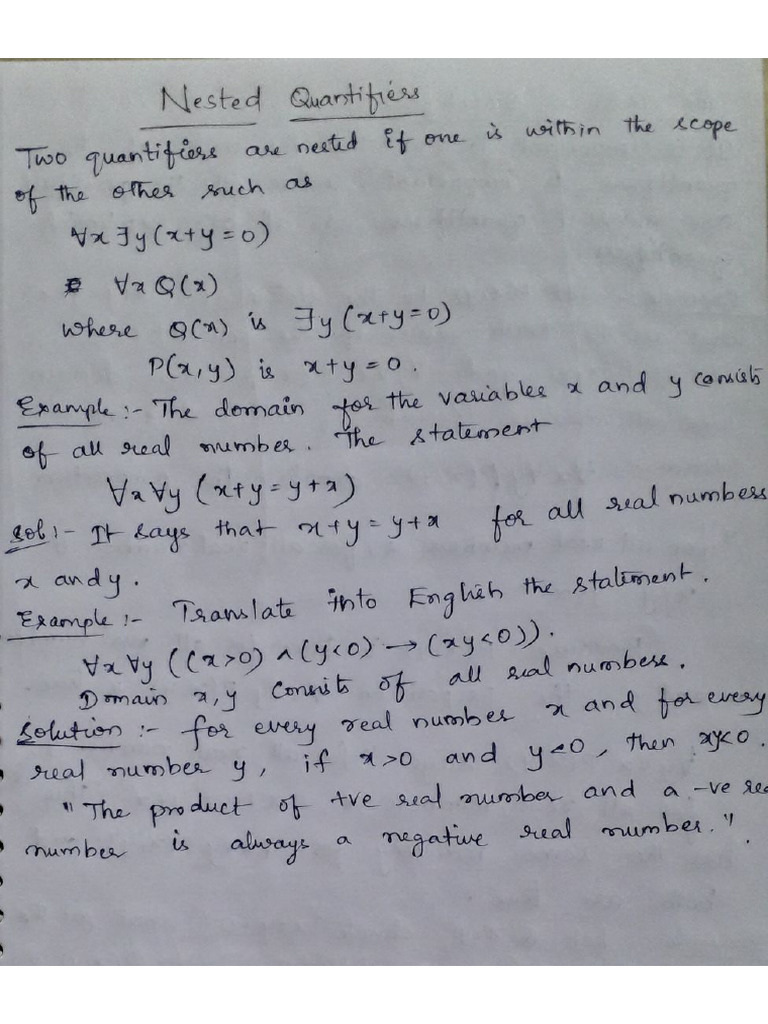 Nested Quantifiers
Two quantifiers are nested if one is within the scope
of the other such as
∀x ∃y (x+y=0)
∀x Q(x)
where Q(x) is ∃y (x+y=0)
P(x,y) is x+y=0.
Example:- The domain for the variables x and y consists
of all real number. The statement
∀x ∀y (x+y=y+x)
Sol:- It says that x+y=y+x for all real numbers
x and y.
Example:- Translate into English the statement.
∀x ∀y ((x>0) ∧ (y<0) → (xy<0)).
Domain x,y consists of all real numbers.
Solution:- for every real number x and for every
real number y, if x>0 and y<0, then xy<0.
"The product of +ve real number and a -ve rea
number is always a negative real number.".